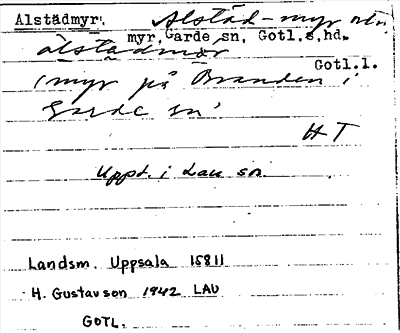 Alstädmyr. Alstäd-myr
myr, Garde sn, Gotl.s.hd.
alstädmör Gotl.l.
(myr på Branden i
Garde sn)
H T
Uppt. i Lau sn.
Landsm. Uppsala 15811
H. Gustavson 1942 LAU
GOTL.